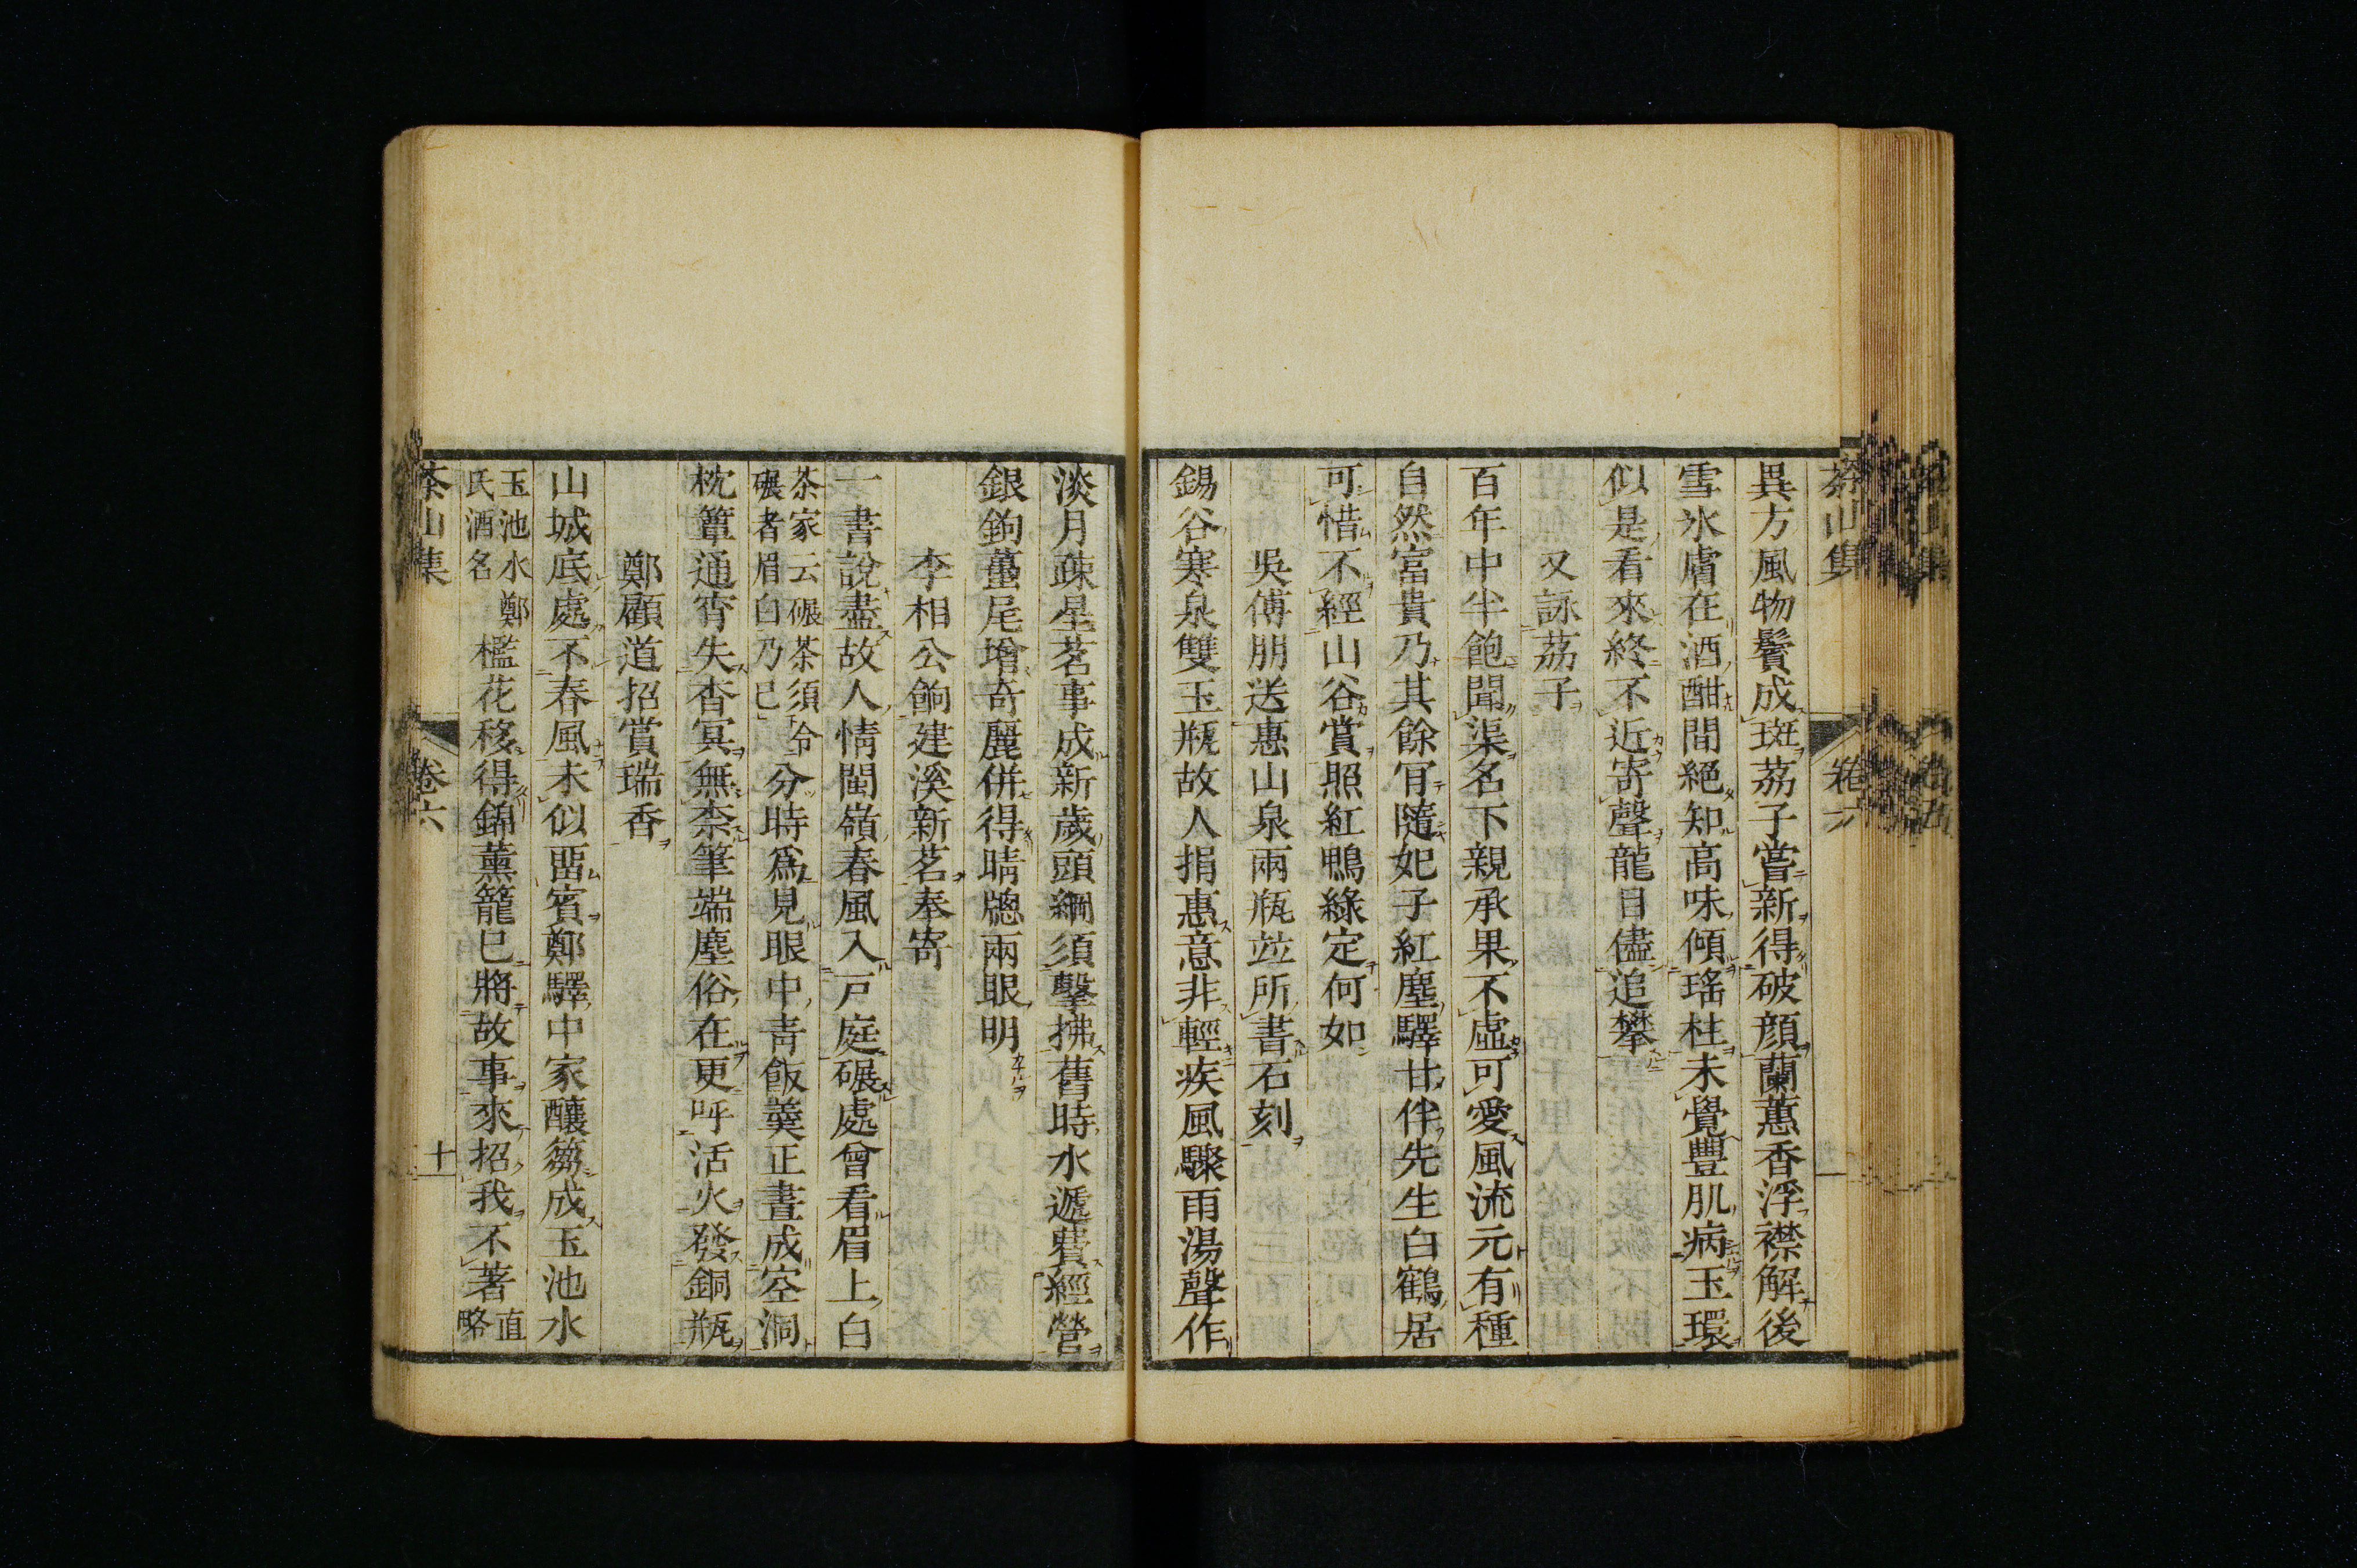 茶山集 卷六
異方風物鬢成斑荔子嘗新得破顏蘭蕙香浮襟解後
雪氷膚在酒酣間絕知高味傾瑤柱未覺豐肌病玉環
似是看來終不近寄聲龍目儘追攀
又詠荔子
百年中半飽聞渠名下親承果不虛可愛風流元有種
自然富貴乃其餘肎隨妃子紅塵驛甘伴先生白鶴居
可惜不經山谷賞照紅鴨綠定何如
吳傅朋送惠山泉兩瓶並所書石刻
錫谷寒泉雙玉瓶故人捐惠意非輕疾風驟雨湯聲作
淡月疎星茗事成新歲頭綱須擊拂舊時水遞費經營
銀鉤蠆尾增奇麗併得晴牕兩眼明
李相公餉建溪新茗奉寄
一書說盡故人情閩嶺春風入戸庭碾處曾看眉上白
茶家云碾茶須令碾者眉白乃已分時爲見眼中青飯羹正晝成空洞
枕簟通宵失杳冥無柰筆端塵俗在更呼活火發銅瓶
鄭顧道招賞瑞香
山城底處不春風未似畱賓鄭驛中家釀篘成玉池水
玉池水鄭氏酒名檻花移得錦薰籠已將故事來招我不著直略
茶山集 卷六 十